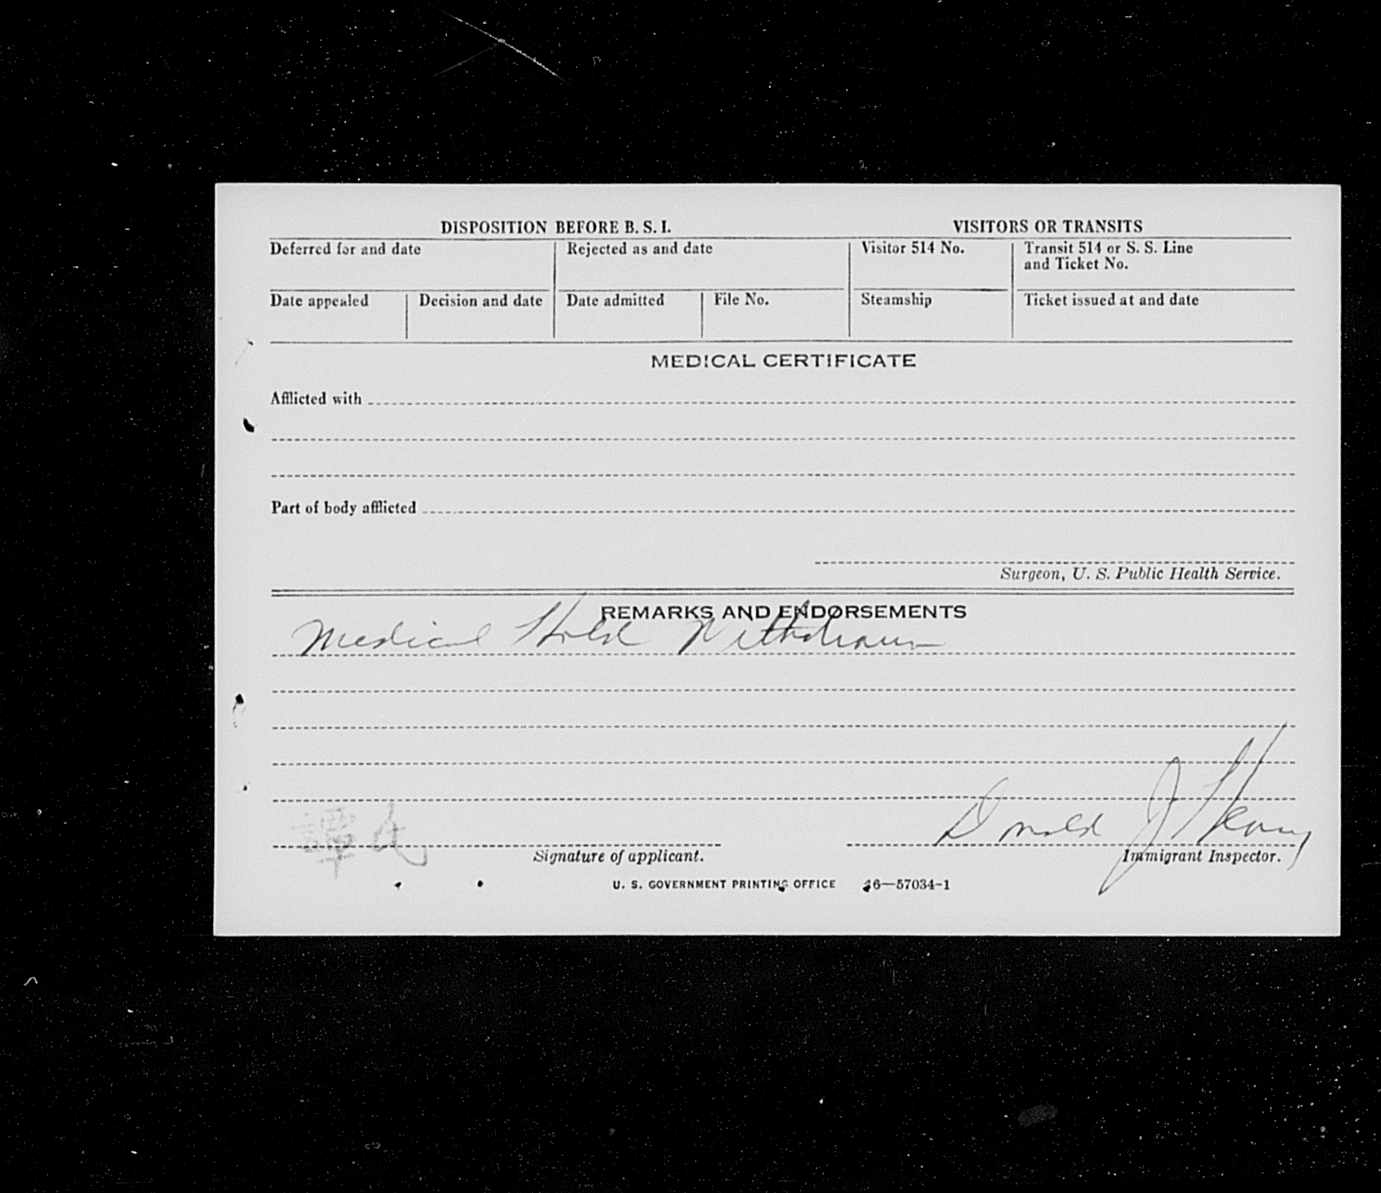 DISPOSITION BEFORE B. S. I.
VISITORS OR TRANSITS
Deferred for and date
Rejected as and date
Visitor 514 No.
Transit 514 or S. S. Line
and Ticket No.
Date appealed
Decision and date
Date admitted
File No.
Steamship
Ticket issued at and date
MEDICAL CERTIFICATE
Afflicted with
Part of body afflicted
Surgeon, U. S. Public Health Service.
REMARKS AND ENDORSEMENTS
Medical Hold Withdrawn
譚氏
Donald J
Signature of applicant.
Immigrant Inspector.
U. S. GOVERNMENT PRINTING OFFICE 16—57034-1